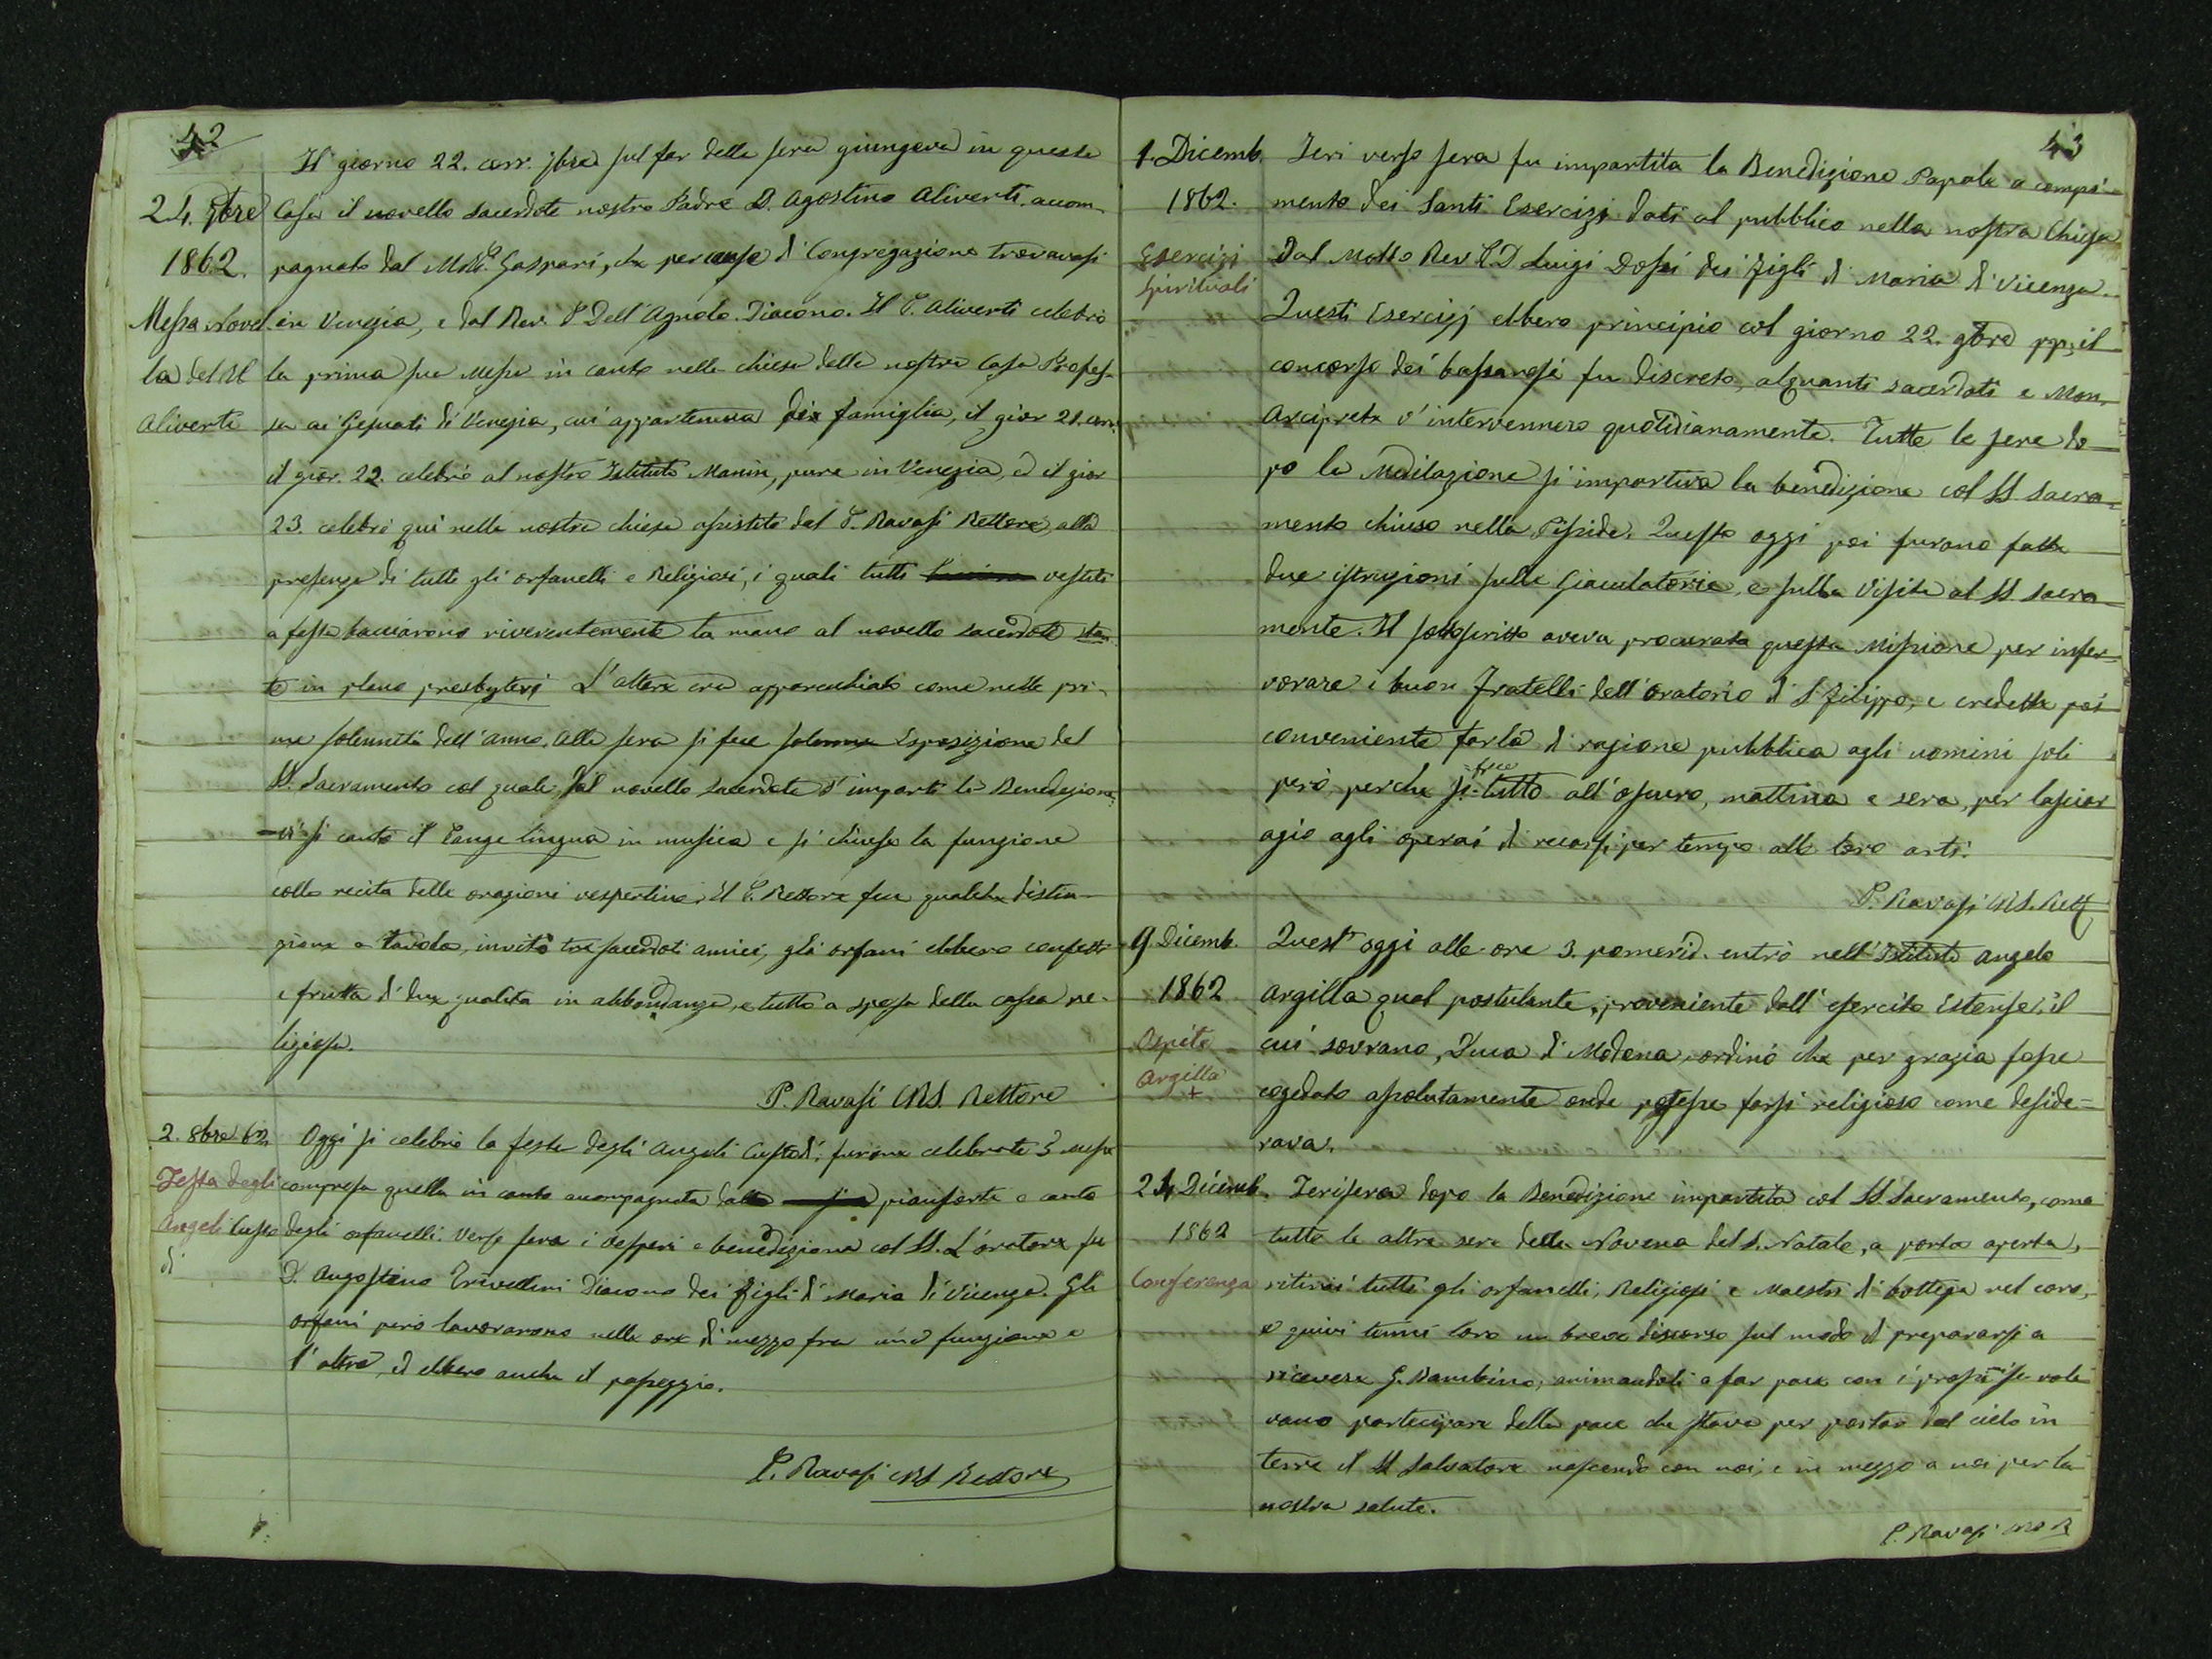 42
24. 7bre
1862.
Messa Novel
la del M
Aliverti
Il giorno 22. corr. 7bre sul far della sera giungeva in questa
Casa il novello sacerdote nostro Padre D. Agostino Aliverti, accom-
pagnato dal M. R. P. Gaspari, che per causa di Congregazione trovavasi
in Venezia, e dal Rev. P. Dell'Agnolo Diacono. Il P. Aliverti celebrò
la prima sua Messa in canto nella chiesa della nostra Casa Profes-
sa ai Gesuati di Venezia, cui apparteneva di famiglia, il gior 21. corr.
il gior. 22. celebrò al nostro Istituto Manin, pure in Venezia, ed il gior
23. celebrò quì nella nostra chiesa assistito dal P. Ravasi Rettore, alla
presenza di tutti gli orfanelli e Religiosi, i quali tutti vestiti
a festa bacciarono riverentemente la mano al novello sacerdote stan
te in plano presbyterj L'altare era apparecchiato come nelle pri-
me solennità dell'anno. Alla sera si fece solenne Esposizione del
SS. Sacramento col quale dal novello sacerdote s'impartì la Benedizione,
vi si cantò il Pange lingua in musica e si chiuse la funzione
colla recita delle orazioni vespertine. Il P. Rettore fece qualche distin-
zione a tavola, invitò tre sacerdoti amici, gli orfani ebbero confetti
e frutta di due qualità in abbondanza, e tutto a spesa della cassa re-
ligiosa.
P. Ravasi CRS. Rettore
2. 8bre 62.
Festa degli
Angeli Custo
di
Oggi si celebrò la festa degli Angeli Custodi, furono celebrate 3 messe
compresa quella in canto accompagnata dal pianforte e canto
degli orfanelli. Verso sera i vesperi e benedizione col SS. L'oratore fu
D. Augostino Trivellini Diacono dei Figli di Maria di Vicenza. Gli
orfani però lavorarono nelle ore di mezzo fra una funzione e
l'altra, ed ebbero anche il passeggio.
P. Ravasi CRS Rettore
43
1. Dicemb.
1862.
Esercizj
spirituali
Ieri verso sera fu impartita la Benedizione Papale a compi-
mento dei Santi Esercizj dati al pubblico nella nostra Chiesa
Dal Molto Rev. P. D Luigi Dossi dei Figli di Maria di Vicenza.
Questi Esercizj ebbero principio col giorno 22. 9bre pp, il
concorso dei bassanesi fu discreto, alquanti sacerdoti e Mon.
Arciprete v'intervennero quotidianamente. Tutte le sere do-
po la Meditazione si impartiva la benedizione col SS Sacra-
mento chiuso nella Pisside. Questo oggi poi furono fatte
due istruzioni sulle Giaculatorie, e sulla Visita al SS. Sacra-
mento. Il sottoscritto aveva procurata questa Missione per infer-
vorare i buoni Fratelli dell'Oratorio di S Filippo, e credette poi
conveniente farla di ragione pubblica agli uomini soli
però, perche si fece tutto all'oscuro, mattina e sera, per lasciar
agio agli operai di recarsi per tempo alle loro arti.
P. Ravasi CRS. Rett
9. Dicemb.
1862
Ospite
Argilla
+
Quest'oggi alle ore 3. pomerid. entrò nell'Istituto Angelo
Argilla qual postulante, proveniente dall'esercito Estense, il
cui sovrano, Duca di Modena, ordinò che per grazia fosse
cogedato assolutamente onde potesse farsi religioso come deside-
rava.
24. Dicemb.
1862
Conferenza
Ierisera dopo la Benedizione impartita col SS. Sacramento, come
tutte le altre sere della Novena del S. Natale, a porta aperta,
ritirai tutti gli orfanelli, Religiosi e Maestri di bottega nel coro,
e quivi tenni loro un breve discorso sul modo di prepararsi a
ricevere G. Bambino, animandoli a far pace con i prossi se vole
vano partecipare della pace che stava per portar dal cielo in
terra il SS Salvatore nascendo con noi, e in mezzo a noi per la
nostra salute.
P. Ravasi CRS R